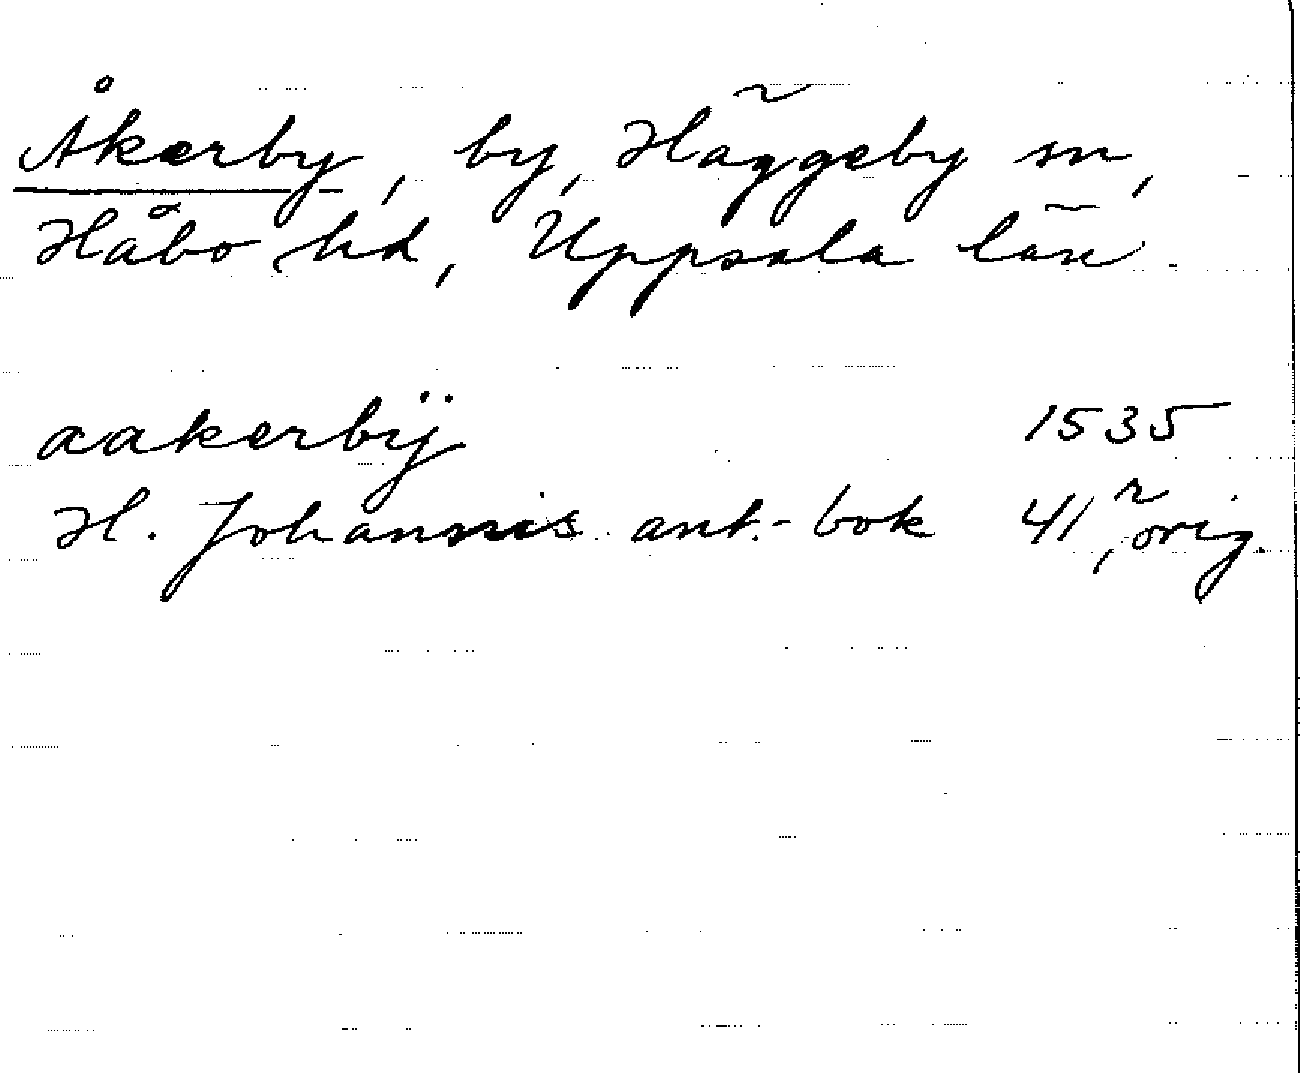 Åkerby, by, Häggeby sn,
Håbo hd, Uppsala län
aakerbÿ 1535
H. Johannis ant.-bok 41r, orig.